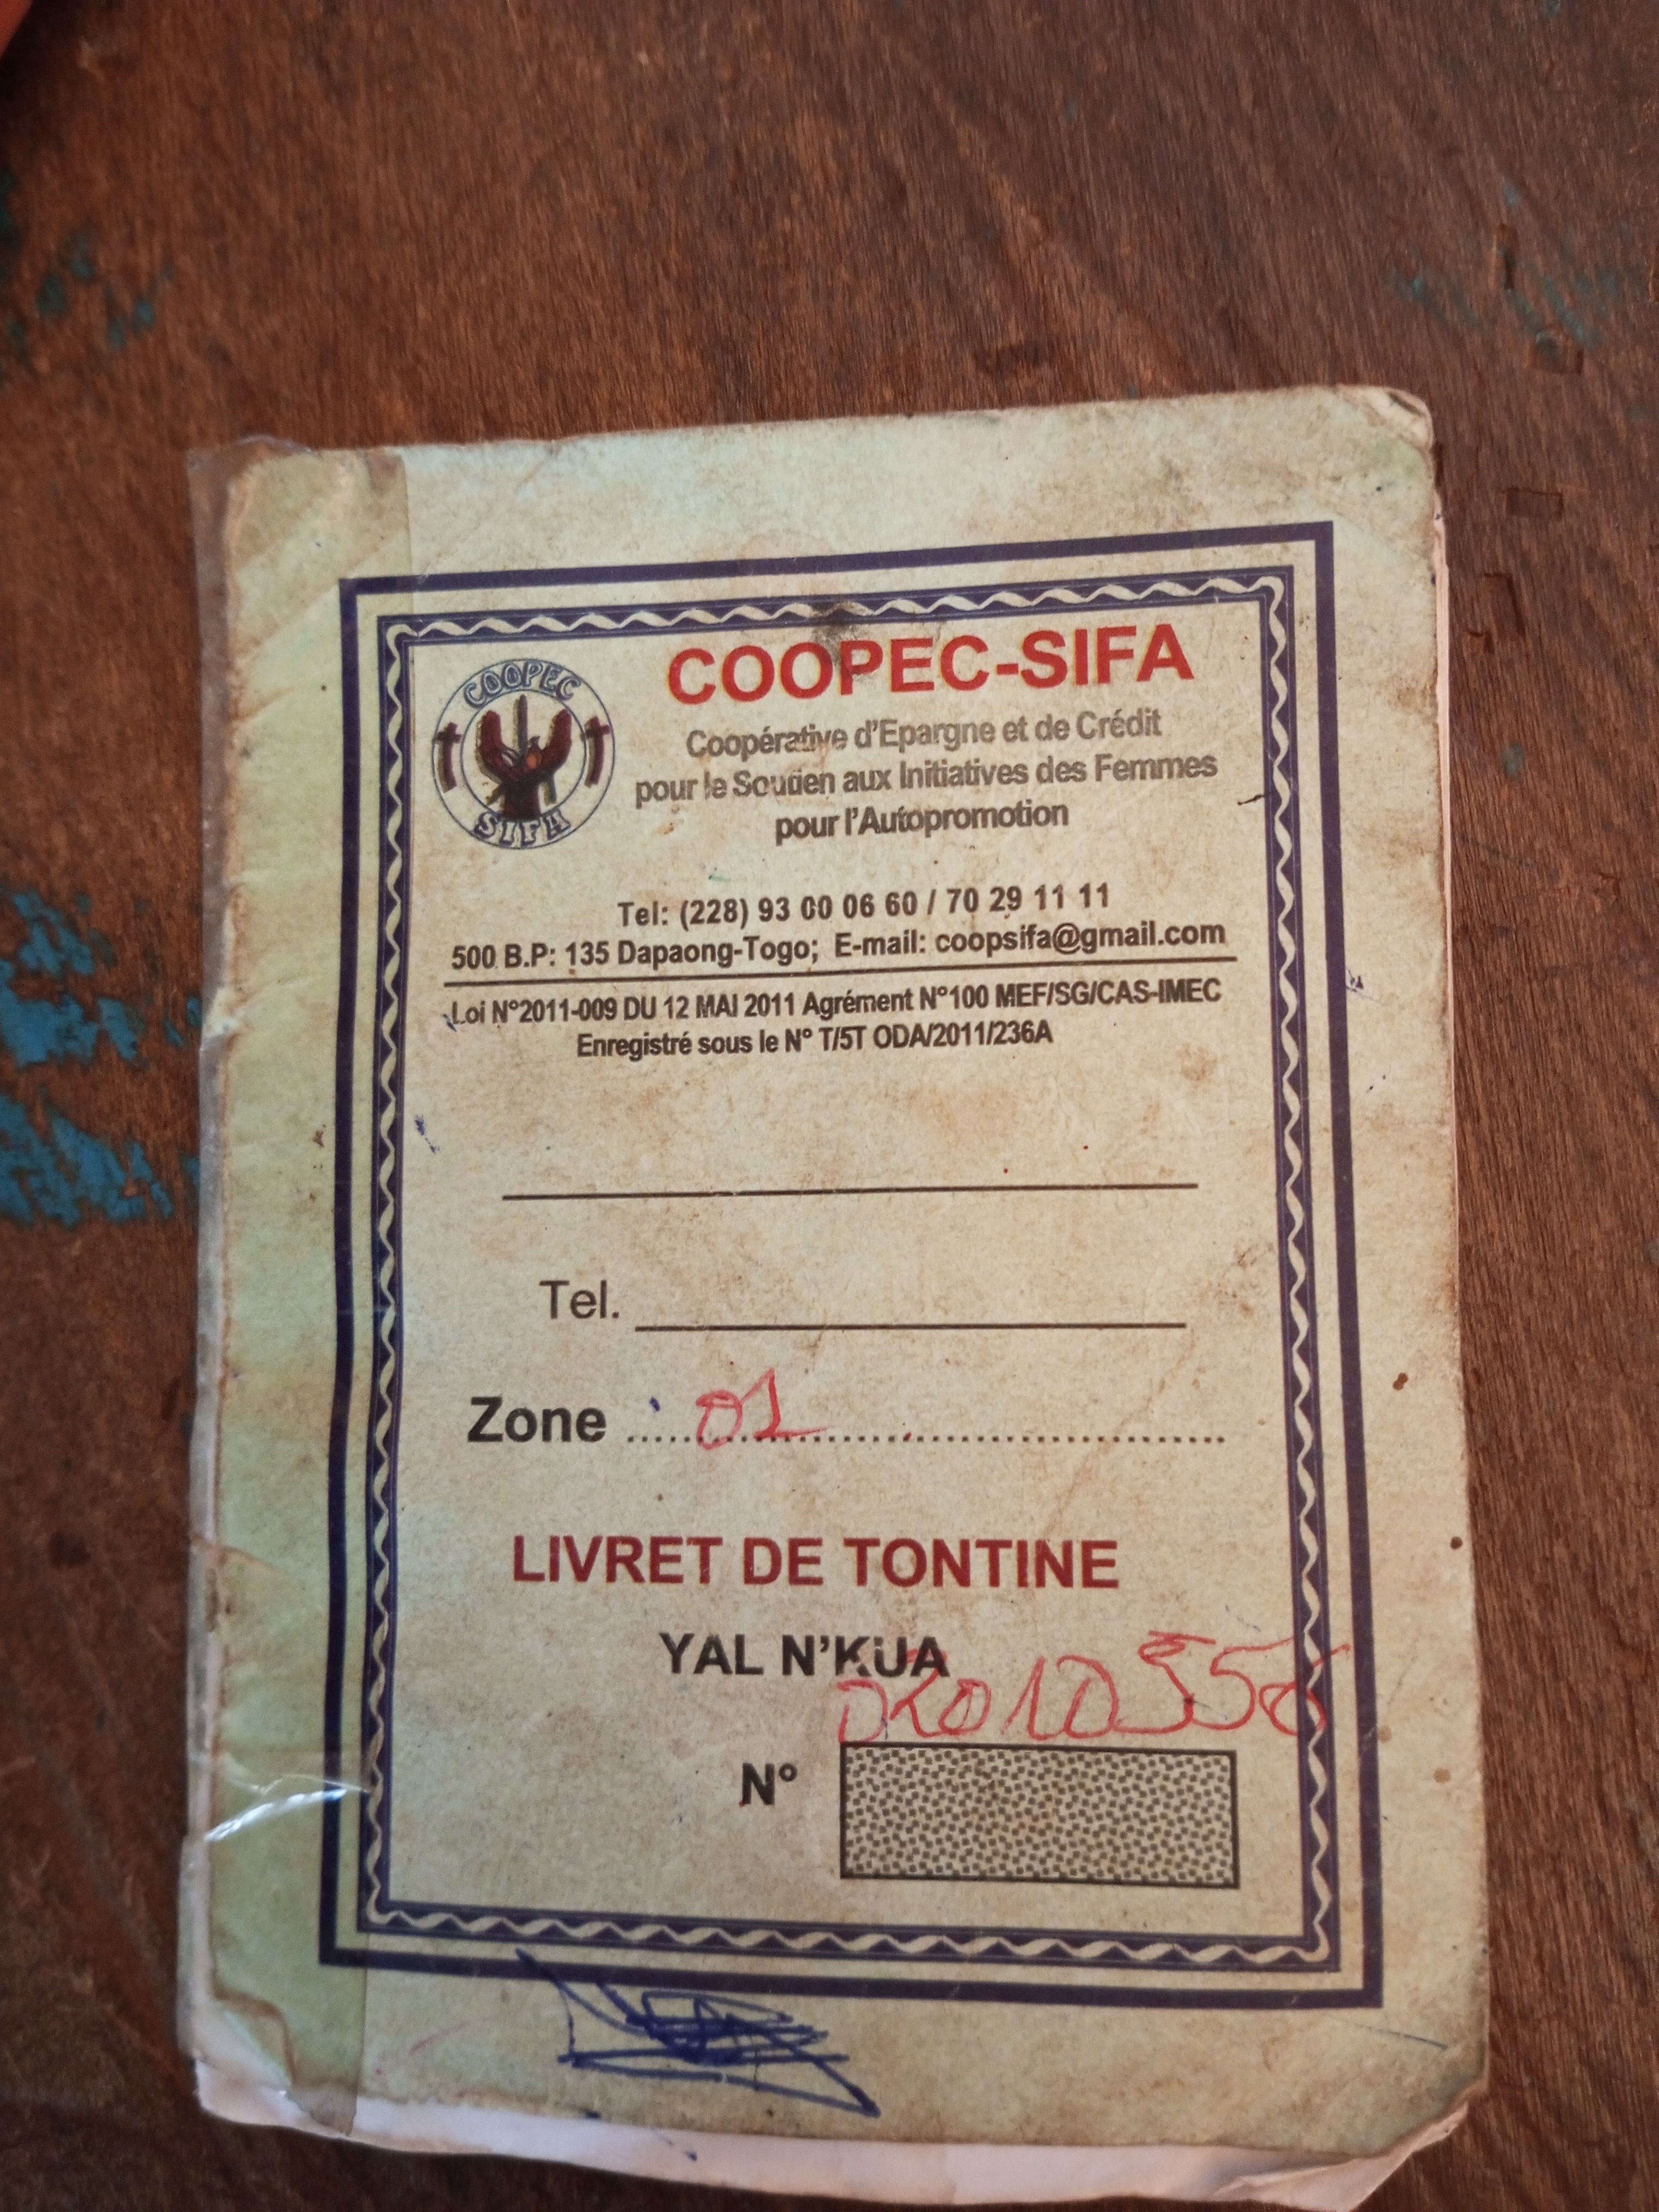 COOPEC-SIFA
COOPEC
SIFA
Coopérative d'Epargne et de Crédit
pour le Soutien aux Initiatives des Femmes
pour l'Autopromotion
Tel: (228) 93 00 06 60 / 70 29 11 11
500 B.P: 135 Dapaong-Togo; E-mail: coopsifa@gmail.com
Loi N°2011-009 DU 12 MAI 2011 Agrément N°100 MEF/SG/CAS-IMEC
Enregistré sous le N° T/5T ODA/2011/236A
Tel.
Zone 01
LIVRET DE TONTINE
YAL N'KUA
N°